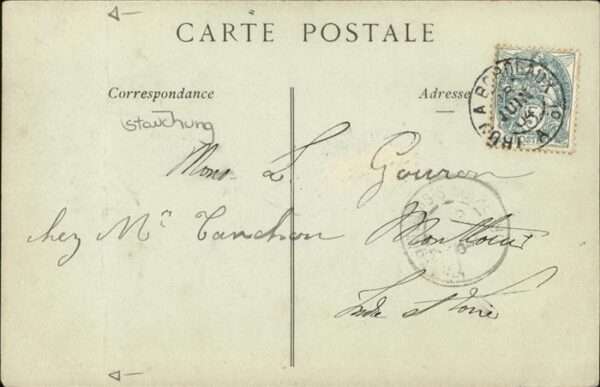 CARTE POSTALE
Correspondance
Adresse
Stauchung
Mons L. Gouron
chez Mr Tanchon Montlouis
Indre & Loire